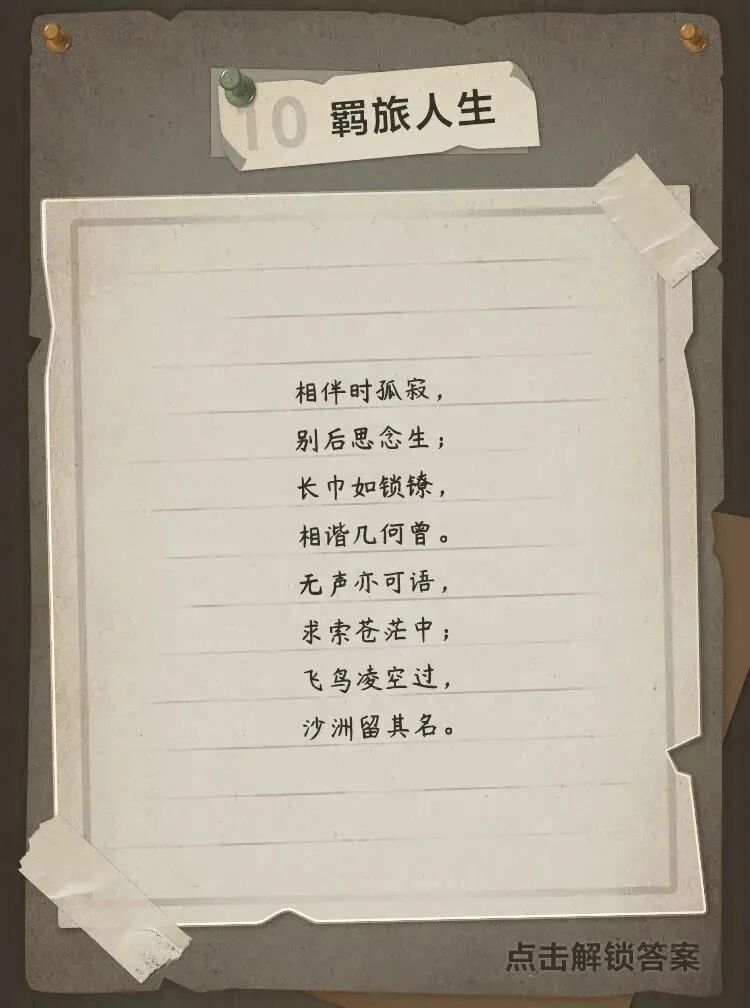 10 羁旅人生
相伴时孤寂，
别后思念生；
长巾如锁镣，
相谐几何曾。
无声亦可语，
求索苍茫中；
飞鸟凌空过，
沙洲留其名。
点击解锁答案